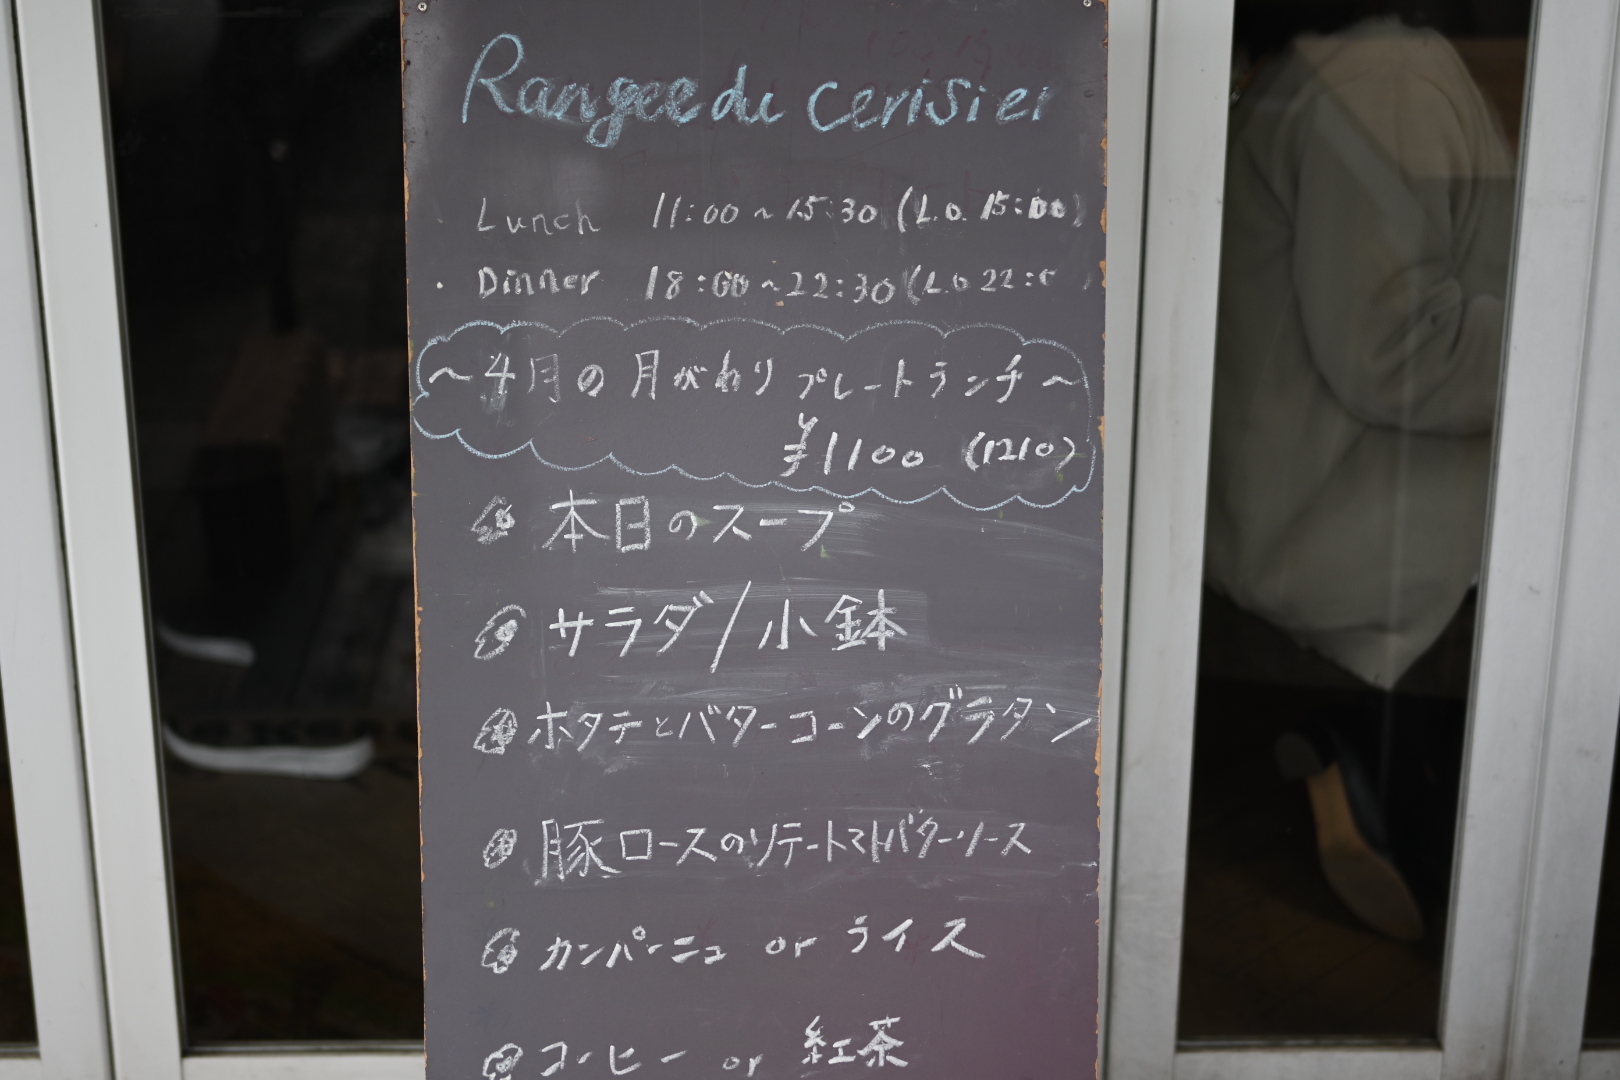 Rangee du cerisier
・Lunch 11:00～15:30 (L.O. 15:00)
・Dinner 18:00～22:30 (L.O 22:0
～4月の月がわりプレートランチ～
¥1100 (1210)
本日のスープ
サラダ/小鉢
ホタテとバターコーンのグラタン
豚ロースのソテートマトバターソース
カンパーニュ or ライス
コーヒー or 紅茶